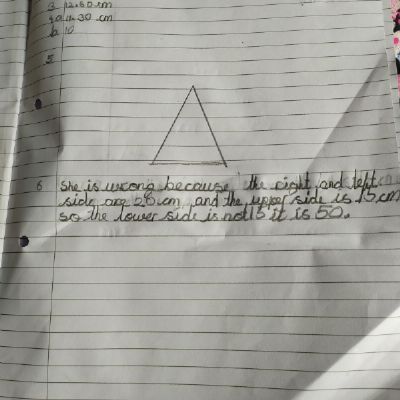 3 12.60 cm
4a 11.30 cm
b 10
5
6 She is wrong because the right and left
side are 5.6 cm and the upper side is 15 cm
so the lower side is not 15 it is 50.